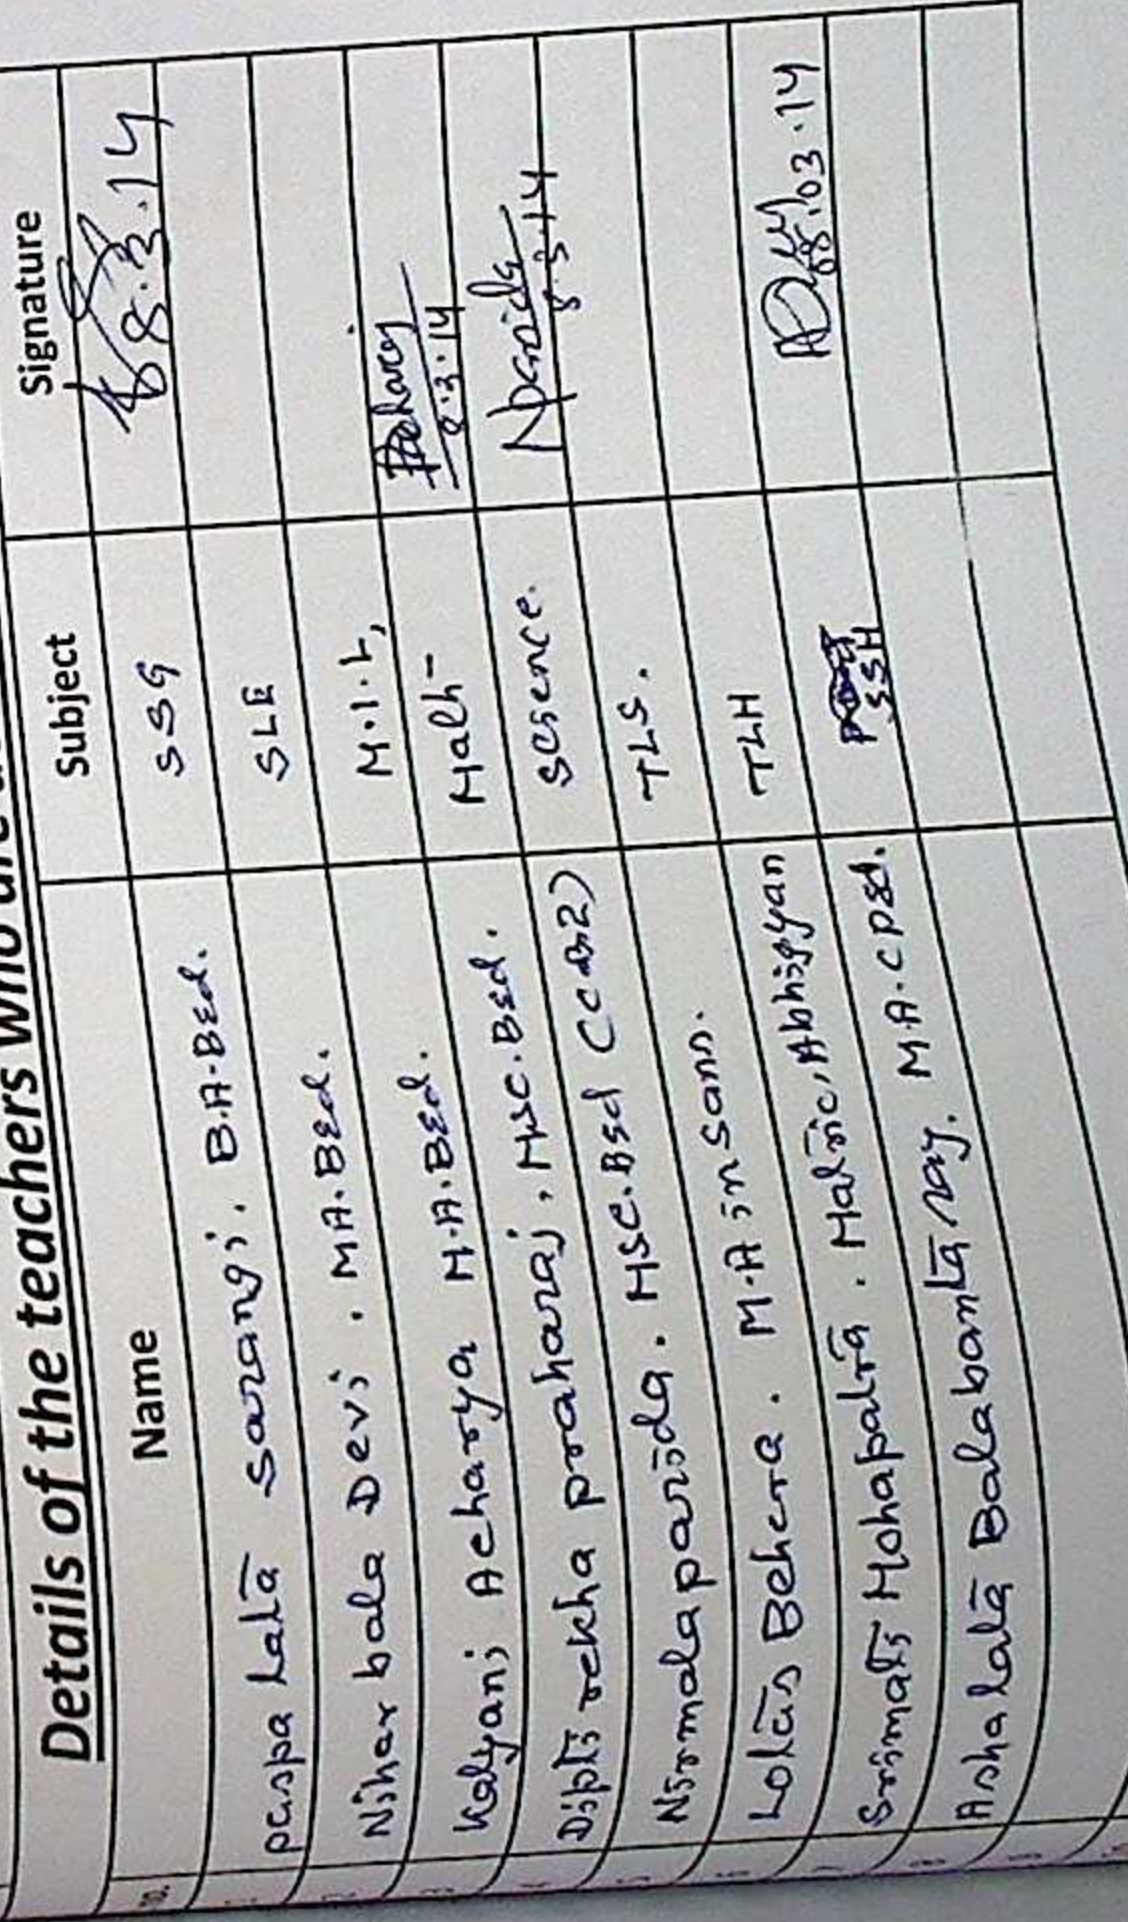 Details of the teachers who are
Name Subject Signature
puspa Latā Sarangi. B.A.BEd. SSG 8.3.14
Nihar bala Devi. MA.BEd. SLE
Kalyani Acharya M.A.BEd. M.I.L,
Dipti rekha praharaj, MSC.BEd. Math- 8.3.14
Nirmala parida. MSC.BEd (CBZ) Scsence. Nparida 8.3.14
Lotās Behera. M.A in Sans. TLS.
Srimati Mohapatrā. Matric, Abhigyan TLH
Asha latā Balabantā ray. M.A.CPEd. SSH 08.03.14